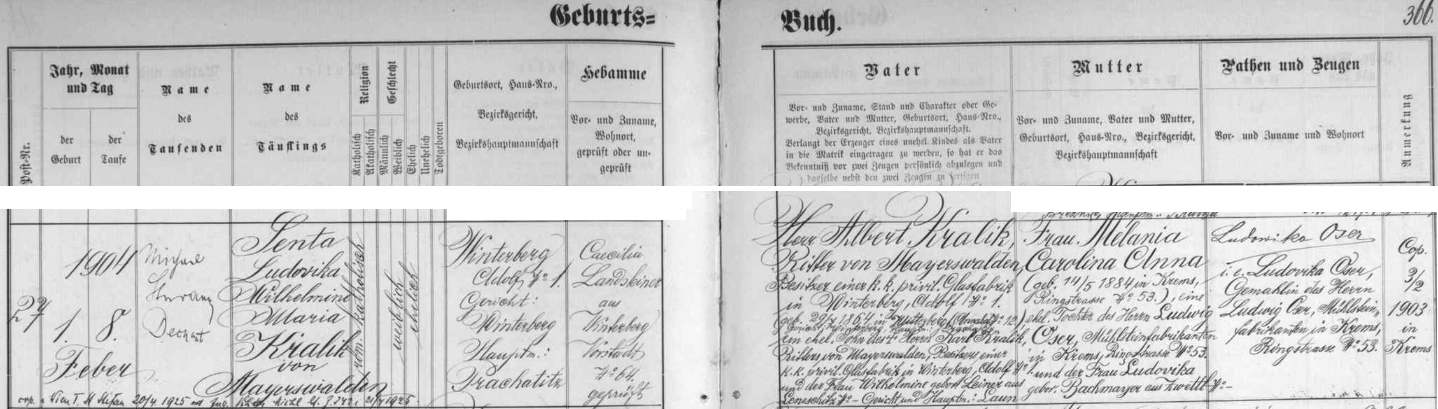 Geburts=
Buch.
366.
Post-Nr.
Jahr, Monat
und Tag
der
Geburt
der
Taufe
Name
des
Taufenden
Name
des
Täuflings
Religion
Katholisch
Akatholisch
Geschlecht
Männlich
Weiblich
Ehelich
Unehelich
Todtgeboren
Geburtsort, Haus-Nro.,
Bezirksgericht,
Bezirkshauptmannschaft
Hebamme
Vor- und Zuname,
Wohnort,
geprüft oder un-
geprüft
Vater
Vor- und Zuname, Stand und Charakter oder Ge-
werbe, Vater und Mutter, Geburtsort, Haus-Nro.,
Bezirksgericht, Bezirkshauptmannschaft.
Verlangt der Erzeuger eines unehel. Kindes als Vater
in die Matrik eingetragen zu werden, so hat er das
Bekenntniß vor zwei Zeugen persönlich abzulegen und
dasselbe nebst den zwei Zeugen zu fertigen
Mutter
Vor- und Zuname, Vater und Mutter,
Geburtsort, Haus-Nro., Bezirksgericht,
Bezirkshauptmannschaft
Pathen und Zeugen
Vor- und Zuname und Wohnort
Anmerkung
1904
1. 8.
Feber
Dechant
Senta
Ludovika
Wilhelmine
Maria
Kralik
von
Mayerswalden
röm. katholisch
weiblich
ehelich
Winterberg
Adolf No 1.
Gericht:
Winterberg
Hauptm.:
Prachatitz
Caecilia
aus
Winterberg
Vorstadt
No 64
geprüft
Herr Albert Kralik,
Ritter von Mayerswalden,
Besitzer einer k.k. privil. Glasfabrik
in Winterberg, Adolf No 1.
ein ehel. Sohn des Herrn Karl Kralik,
Ritters von Mayerswalden, Besitzers einer
k.k. privil. Glasfabrik in Winterberg, Adolf No 1
und der Frau Wilhelmine gebor. Leiner aus
Gericht und Hauptm.: Laun
Frau Melania
Carolina Anna
(geb. 14/5 1884 in Krems,
Ringstrasse No 53.), eine
ehel. Tochter des Herrn Ludwig
Oser, Mühlsteinfabrikanten
in Krems, Ringstrasse No 53.
und der Frau Ludovika
gebor. Bachmayer aus Zwettl No –
Ludovika Oser
i. e. Ludovika Oser,
Gemahlin des Herrn
Ludwig Oser, Mühlstein-
fabrikanten in Krems,
Ringstrasse No 53.
Cop.
3/2
1903
in
Krems
cop. Wien St. Stefan 20/4 1925